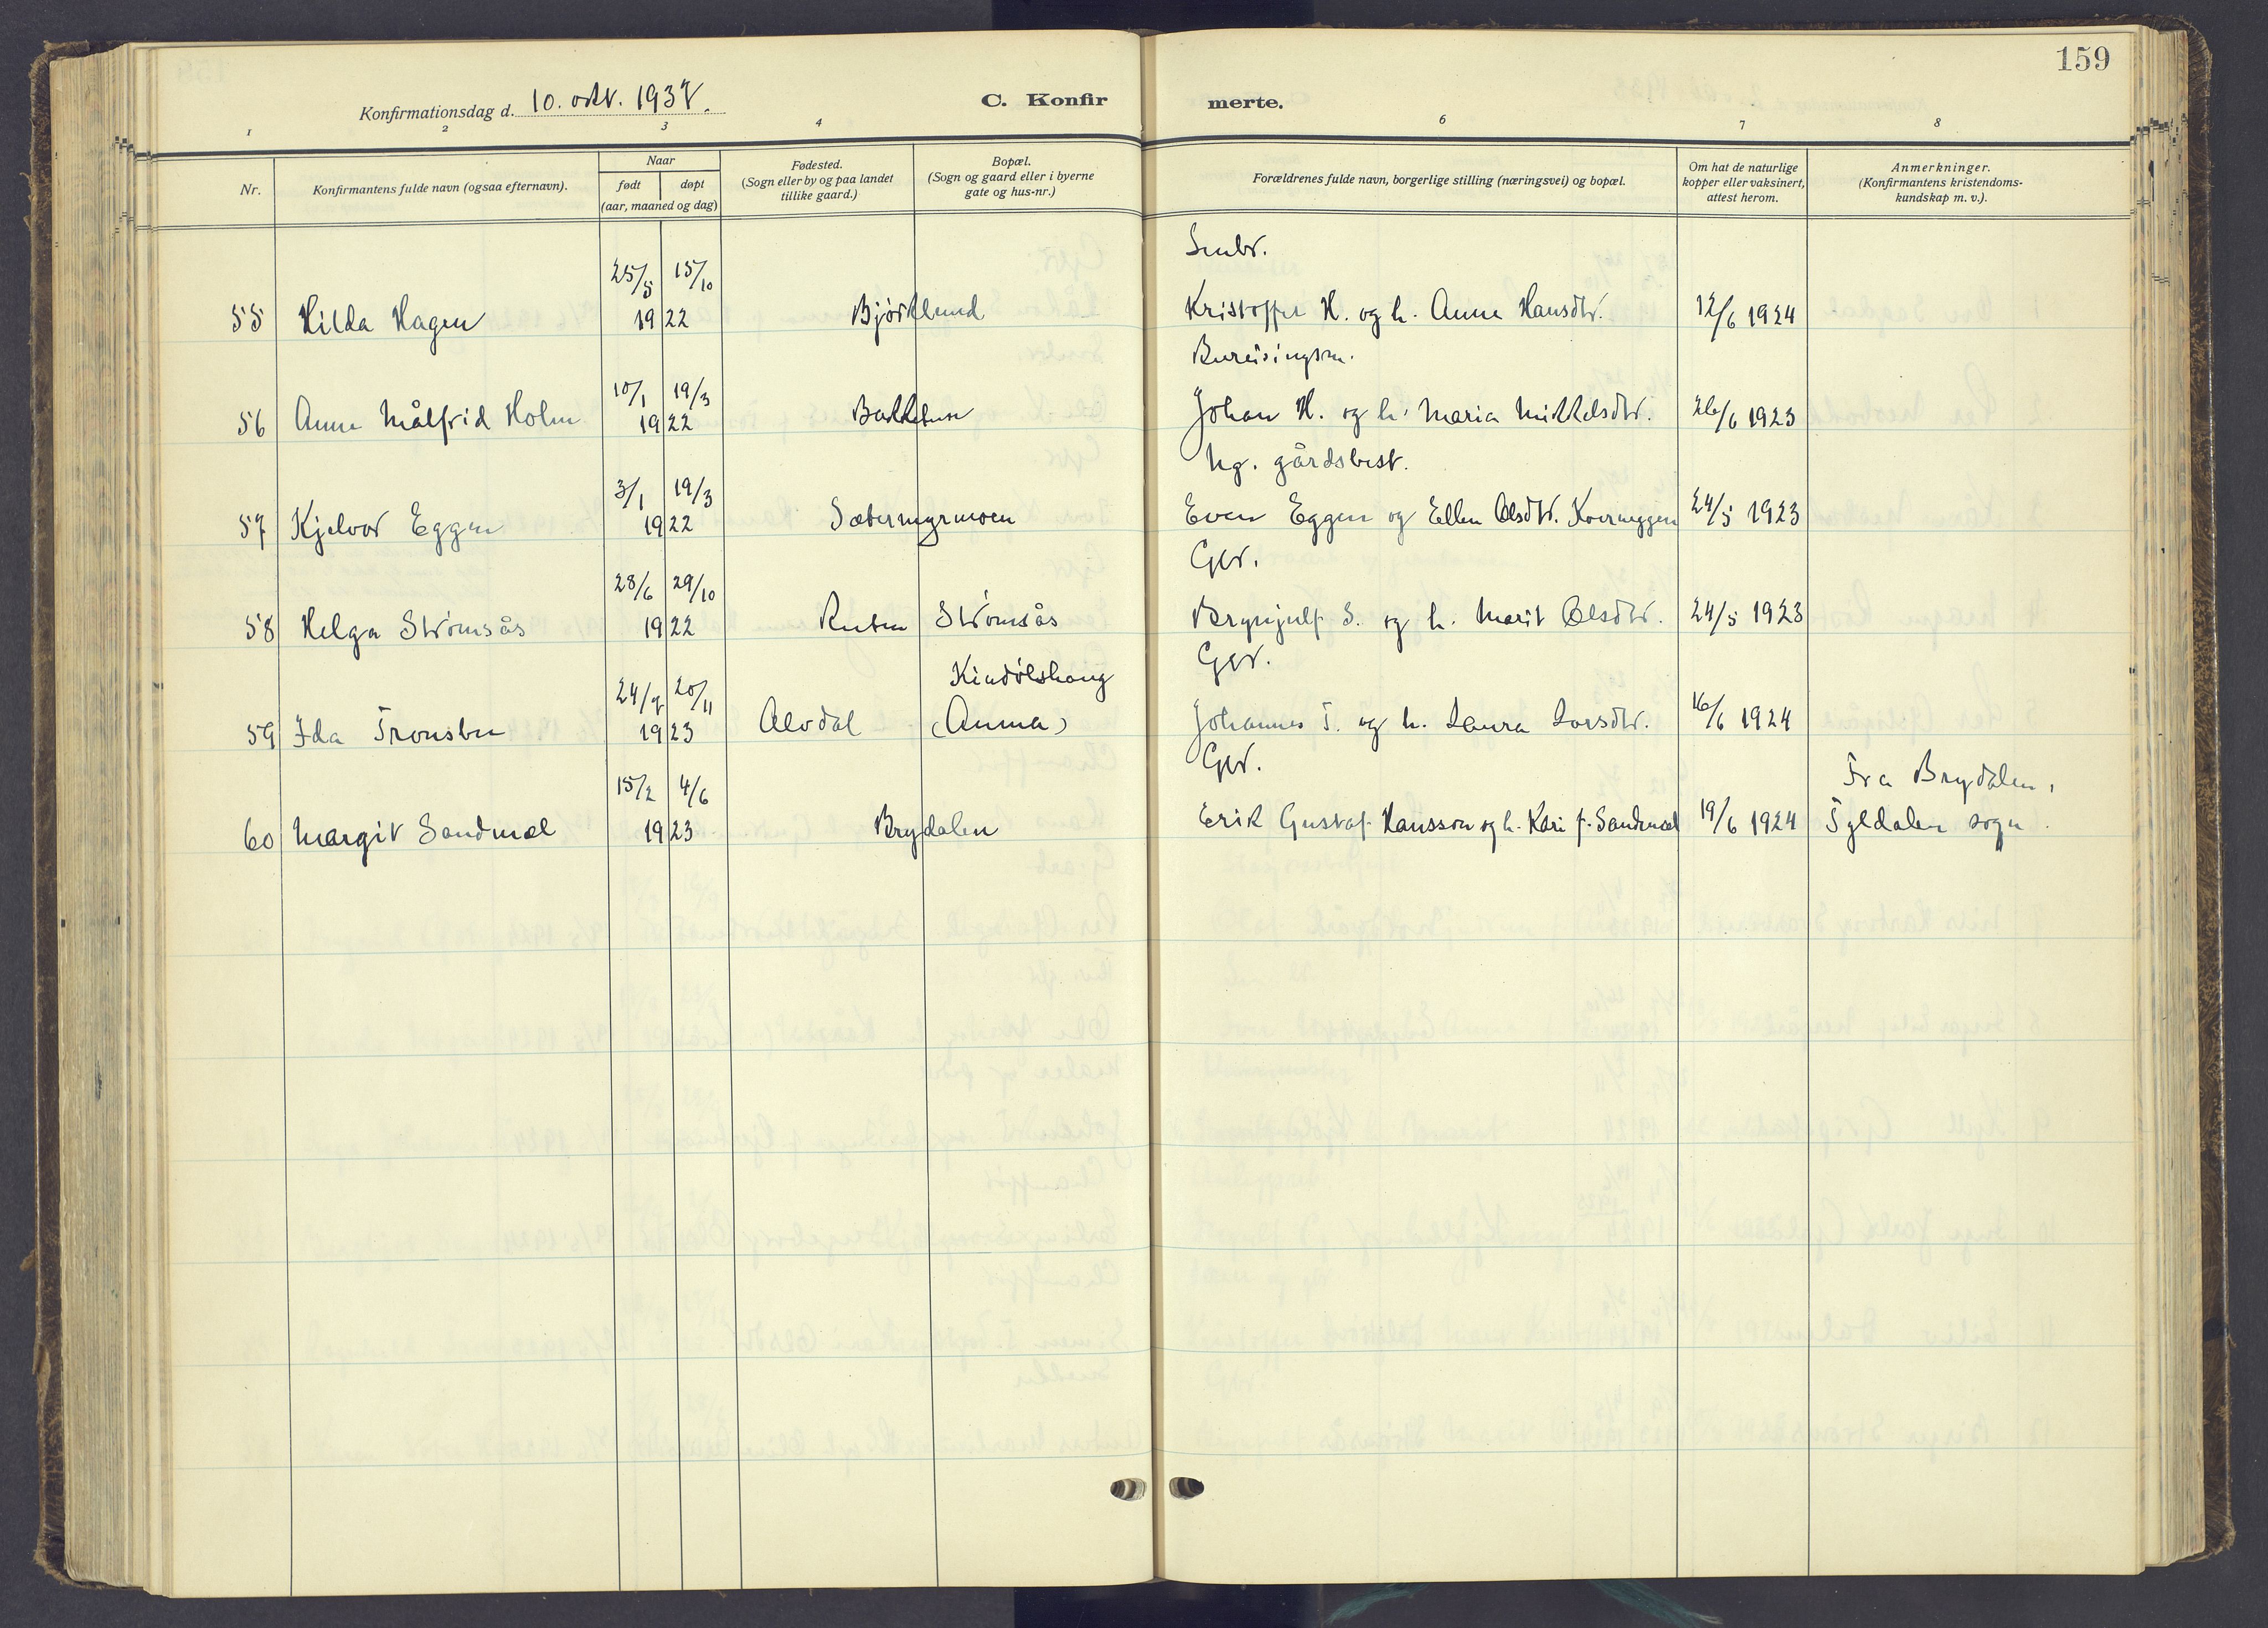 159
Konfirmationsdag d. 10. okt. 1937.
C. Konfirmerte.
1 2 3 4 6 7 8
Nr.
Konfirmantens fulde navn (ogsaa efternavn).
Naar
født døpt
(aar, maaned og dag)
Fødested.
(Sogn eller by og paa landet
tillike gaard.)
Bopæl.
(Sogn og gaard eller i byerne
gate og hus-nr.)
Forældrenes fulde navn, borgerlige stilling (næringsvei) og bopæl.
Om hat de naturlige
kopper eller vaksinert,
attest herom.
Anmerkninger.
(Konfirmantens kristendoms-
kundskap m. v.).
Smbr.
25/5 15/10
55 Hilda Hagen 1922 Bjørklund Kristoffer H. og h. Anne Hansdtr. 12/6 1924
Bureisingsm.
10/1 19/3
56 Anne Målfrid Holm 1922 Bakketun Johan H. og h. Maria Mikkelsdtr. 26/6 1923
Ug. gårdsbest.
3/1 19/3
57 Kjelvor Eggen 1922 Sætermyrmoen Even Eggen og Ellen Olsdtr. Kverneggen 24/5 1923
Gbr.
28/6 29/10
58 Helga Strømsås 1922 Ruten Strømsås Brynjulf S. og h. Marit Olsdtr. 24/5 1923
Gbr.
Kindølshaug
24/9 20/11
59 Ida Tronsbu 1923 Alvdal (Auma) Johannes T. og h. Laura Larsdtr. 16/6 1924
Gbr.
15/2 4/6 Fra Brydalen,
60 Margit Sandmæl 1923 Brydalen Erik Gustaf Hansson og h. Kari f. Sandmæl 19/6 1924 Tyldalen sogn.